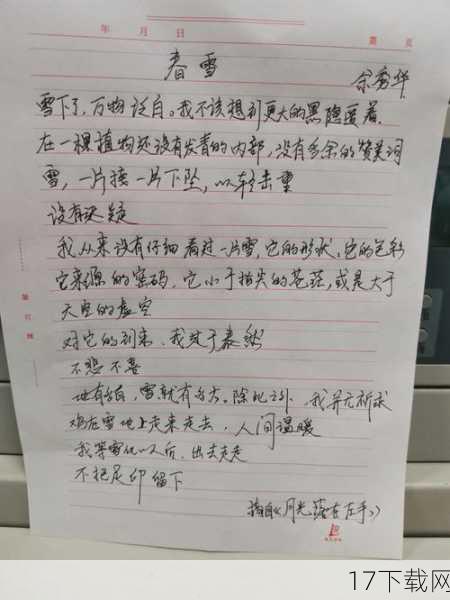 年 月 日 第 页
春雪
余秀华
雪下了,万物泛白。我不该想到更大的黑隐匿着,
在一棵植物还没有发青的内部,没有多余的赞美词
雪,一片接一片下坠,以轻击重
没有迟疑
我从来没有仔细看过一片雪,它的形状,它的色彩
它来源的密码,它小于指尖的苍茫,或是大于
天空的虚空
对它的到来,我过于泰然
不悲不喜
地有多白,雪就有多大。除此之外,我并无祈求
鸡在雪地上走来走去,人间温暖
我等雪化了以后,出去走走
不把足印留下
摘自《月光落在左手》
17下载网